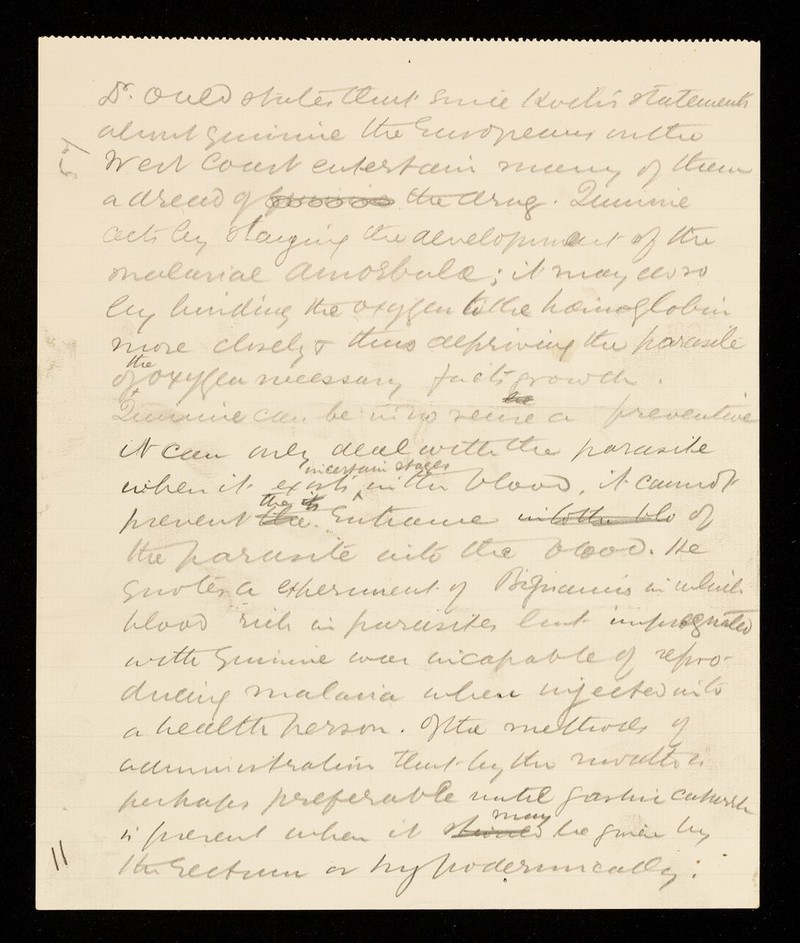 Dr. Ould states that since Koch's statements
about Quinine the Europeans on the
West Coast entertain many of them
a dread of quinine the drug. Quinine
acts by staying the development of the
malarial amoebulae; it may do so
by binding the oxygen to the hæmoglobin
more closely & thus depriving the parasite
of the oxygen necessary for its growth.
Quinine can be in no sense a preventive
it can only deal with the parasite
when it exists in certain stages in the blood, it cannot
prevent the its entrance into the blo of
the parasite into the blood. He
quotes a experiment of Bignami's in which
blood rich in parasites but impregnated
with Quinine was incapable of repro-
ducing malaria when injected into
a health person. Of the methods of
administration that by the mouth is
perhaps preferable until gastric catarrh
is present when it should may be given by
11
the rectum or hypodermically: